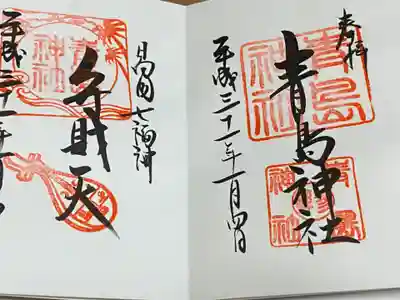 奉拝
青島
神社
青島神社
平成三十一年一月四日
日向七福神
青島
神社
弁財天
平成三十一年一月